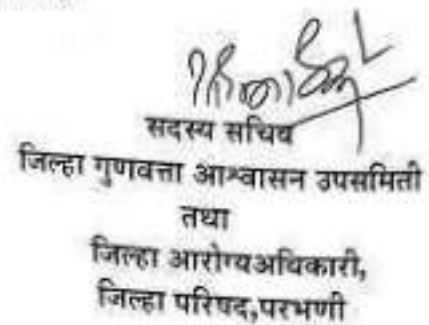 सदस्य सचिव
जिल्हा गुणवत्ता आश्वासन उपसमिती
तथा
जिल्हा आरोग्यअधिकारी,
जिल्हा परिषद,परभणी